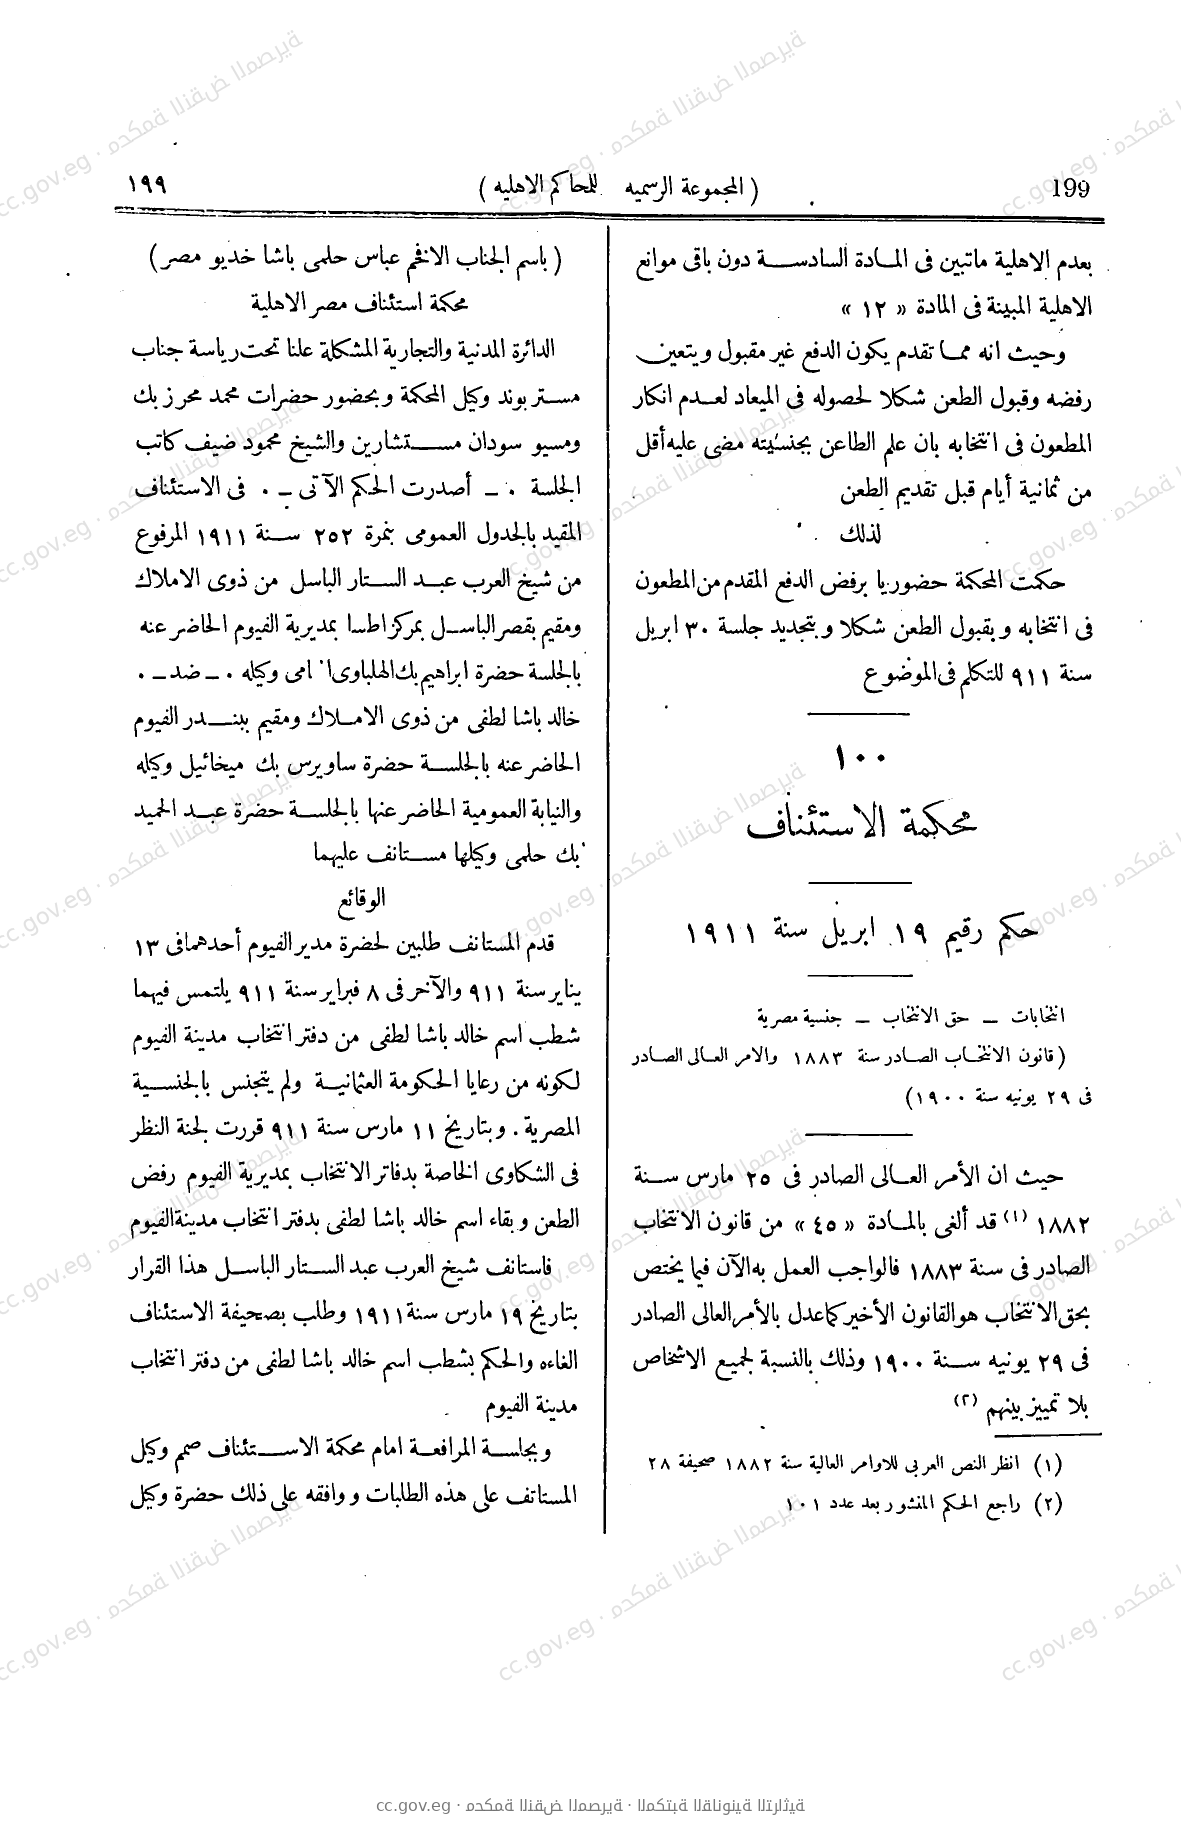 199 ( المجموعة الرسميه للمحاكم الاهليه ) ١٩٩
بعدم الاهلية ماتبين فى المادة السادسة دون باقى موانع
الاهلية المبينة فى المادة « ١٢ »
وحيث انه مما تقدم يكون الدفع غير مقبول ويتعين
رفضه وقبول الطعن شكلا لحصوله فى الميعاد لعدم انكار
المطعون فى انتخابه بان علم الطاعن بجنسيته مضى عليه أقل
من ثمانية أيام قبل تقديم الطعن
لذلك
حكمت المحكمة حضوريا برفض الدفع المقدم من المطعون
فى انتخابه وبقبول الطعن شكلا وبتجديد جلسة ٣٠ ابريل
سنة ٩١١ للتكلم فى الموضوع
١٠٠
محكمة الاستئناف
حكم رقيم ١٩ ابريل سنة ١٩١١
انتخابات — حق الانتخاب — جنسية مصرية
( قانون الانتخاب الصادر سنة ١٨٨٣ والامر العالى الصادر
فى ٢٩ يونيه سنة ١٩٠٠)
حيث ان الأمر العالى الصادر فى ٢٥ مارس سنة
١٨٨٢ (١) قد ألغى بالمادة « ٤٥ » من قانون الانتخاب
الصادر فى سنة ١٨٨٣ فالواجب العمل به الآن فيما يختص
بحق الانتخاب هو القانون الأخير كما عدل بالأمر العالى الصادر
فى ٢٩ يونيه سنة ١٩٠٠ وذلك بالنسبة لجميع الاشخاص
بلا تمييز بينهم (٢)
(١) انظر النص العربى للاوامر العالية سنة ١٨٨٢ صحيفة ٢٨
(٢) راجع الحكم المنشور بعد عدد ١٠١
( باسم الجناب الافخم عباس حلمى باشا خديو مصر )
محكمة استئناف مصر الاهلية
الدائرة المدنية والتجارية المشكلة علنا تحت رياسة جناب
مستر بوند وكيل المحكمة وبحضور حضرات محمد محرز بك
ومسيو سودان مستشارين والشيخ محمود ضيف كاتب
الجلسة . — أصدرت الحكم الآتى — . فى الاستئناف
المقيد بالجدول العمومى بنمرة ٢٥٢ سنة ١٩١١ المرفوع
من شيخ العرب عبد الستار الباسل من ذوى الاملاك
ومقيم بقصر الباسل بمركز اطسا بمديرية الفيوم الحاضر عنه
بالجلسة حضرة ابراهيم بك الهلباوى المحامى وكيله . — ضد — .
خالد باشا لطفى من ذوى الاملاك ومقيم ببندر الفيوم
الحاضر عنه بالجلسة حضرة ساويرس بك ميخائيل وكيله
والنيابة العمومية الحاضر عنها بالجلسة حضرة عبد الحميد
بك حلمى وكيلها مستانف عليهما
الوقائع
قدم المستانف طلبين لحضرة مدير الفيوم أحدهما فى ١٣
يناير سنة ٩١١ والآخر فى ٨ فبراير سنة ٩١١ يلتمس فيهما
شطب اسم خالد باشا لطفى من دفتر انتخاب مدينة الفيوم
لكونه من رعايا الحكومة العثمانية ولم يتجنس بالجنسية
المصرية . وبتاريخ ١١ مارس سنة ٩١١ قررت لجنة النظر
فى الشكاوى الخاصة بدفاتر الانتخاب بمديرية الفيوم رفض
الطعن وبقاء اسم خالد باشا لطفى بدفتر انتخاب مدينة الفيوم
فاستانف شيخ العرب عبد الستار الباسل هذا القرار
بتاريخ ١٩ مارس سنة ١٩١١ وطلب بصحيفة الاستئناف
الغاءه والحكم بشطب اسم خالد باشا لطفى من دفتر انتخاب
مدينة الفيوم
وبجلسة المرافعة امام محكمة الاستئناف صمم وكيل
المستانف على هذه الطلبات ووافقه على ذلك حضرة وكيل
cc.gov.eg · محكمة النقض المصرية · المكتبة القانونية التراثية